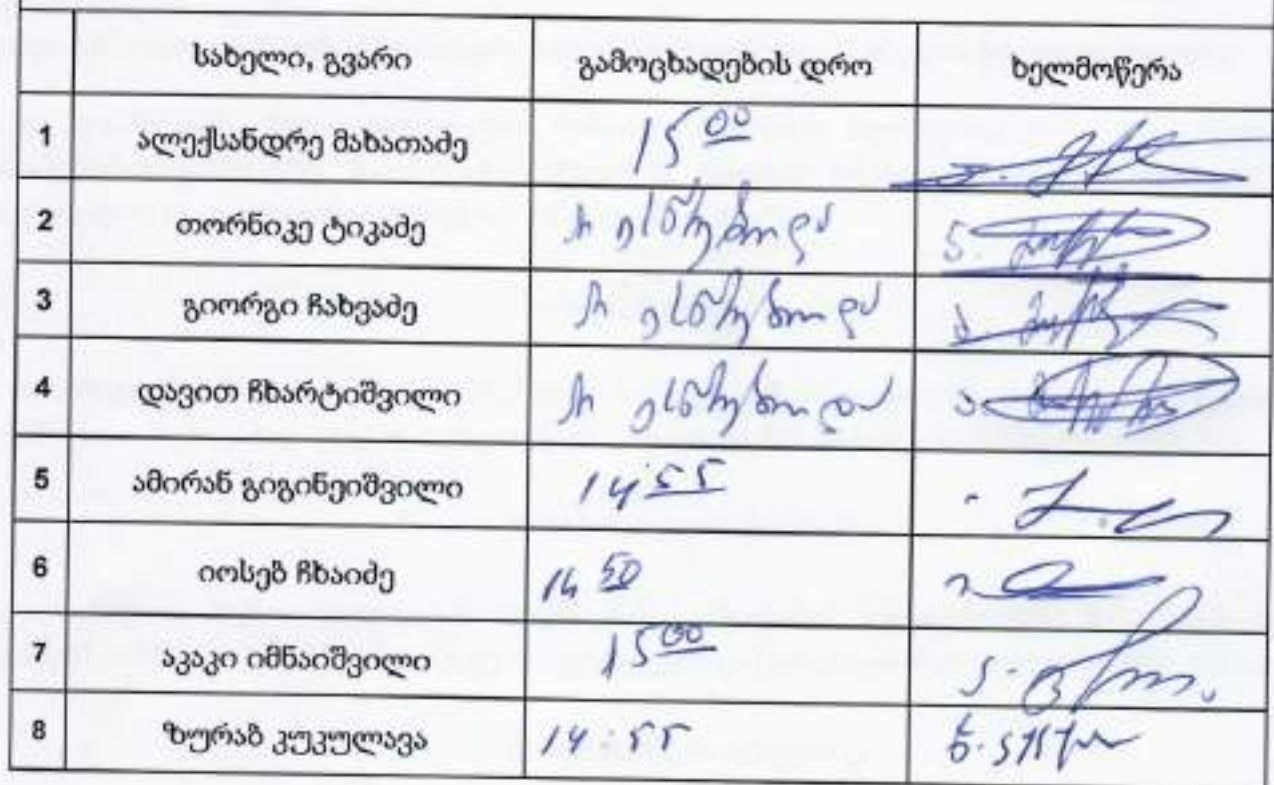 სახელი, გვარი გამოცხადების დრო ხელმოწერა
1 ალექსანდრე მახათაძე 15 00
2 თორნიკე ტიკაძე არ ესწრებოდა
3 გიორგი ჩახვაძე არ ესწრებოდა
4 დავით ჩხარტიშვილი არ ესწრებოდა
5 ამირან გიგინეიშვილი 14:55
6 იოსებ ჩხაიძე 14 50
7 აკაკი იმნაიშვილი 15 00
8 ზურაბ კუკულავა 14:55